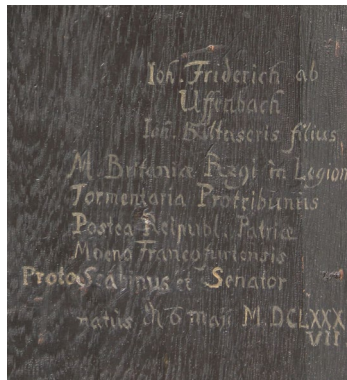 Ioh. Friderich ab
Uffenbach
Ioh. Baltasaris filius
M. Britaniæ Regi in Legion
Tormentaria Protribunus
Postea Reipubl. Patriæ
Moeno Francofurtensis
ProtoScabinus et Senator
natus d. 6 maji M.DCLXXX
VII